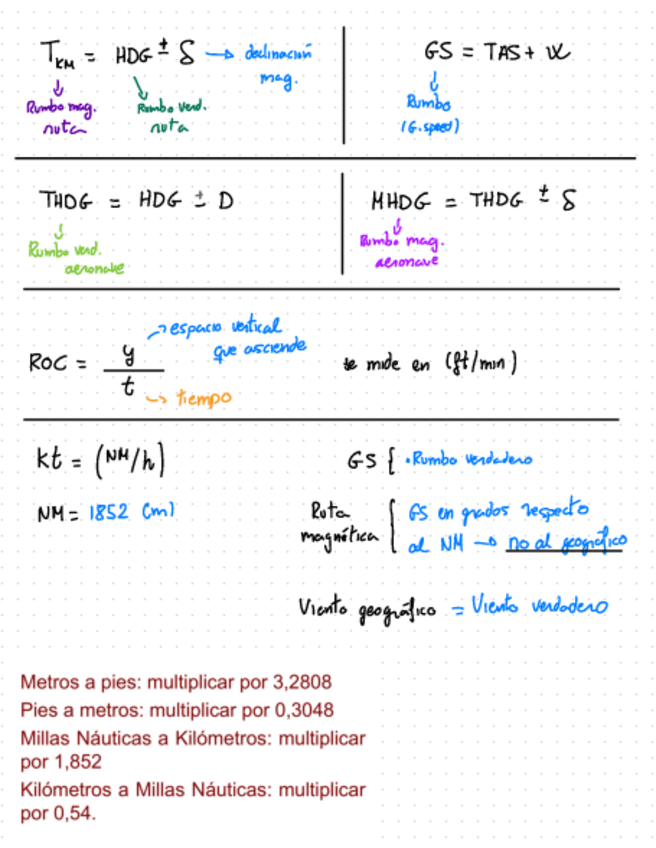 T_KM = HDG ± δ → declinación mag.
Rumbo mag. ruta
Rumbo verd. ruta
GS = TAS + W
Rumbo (G.speed)
THDG = HDG ± D
Rumbo verd. aeronave
MHDG = THDG ± δ
Rumbo mag. aeronave
ROC = y / t
→ espacio vertical que asciende
→ tiempo
se mide en (ft/min)
kt = (NM/h)
GS { • Rumbo verdadero
NM = 1852 (m)
Ruta magnética { GS en grados respecto
al NM → no al geográfico
Viento geográfico = Viento verdadero
Metros a pies: multiplicar por 3,2808
Pies a metros: multiplicar por 0,3048
Millas Náuticas a Kilómetros: multiplicar
por 1,852
Kilómetros a Millas Náuticas: multiplicar
por 0,54.